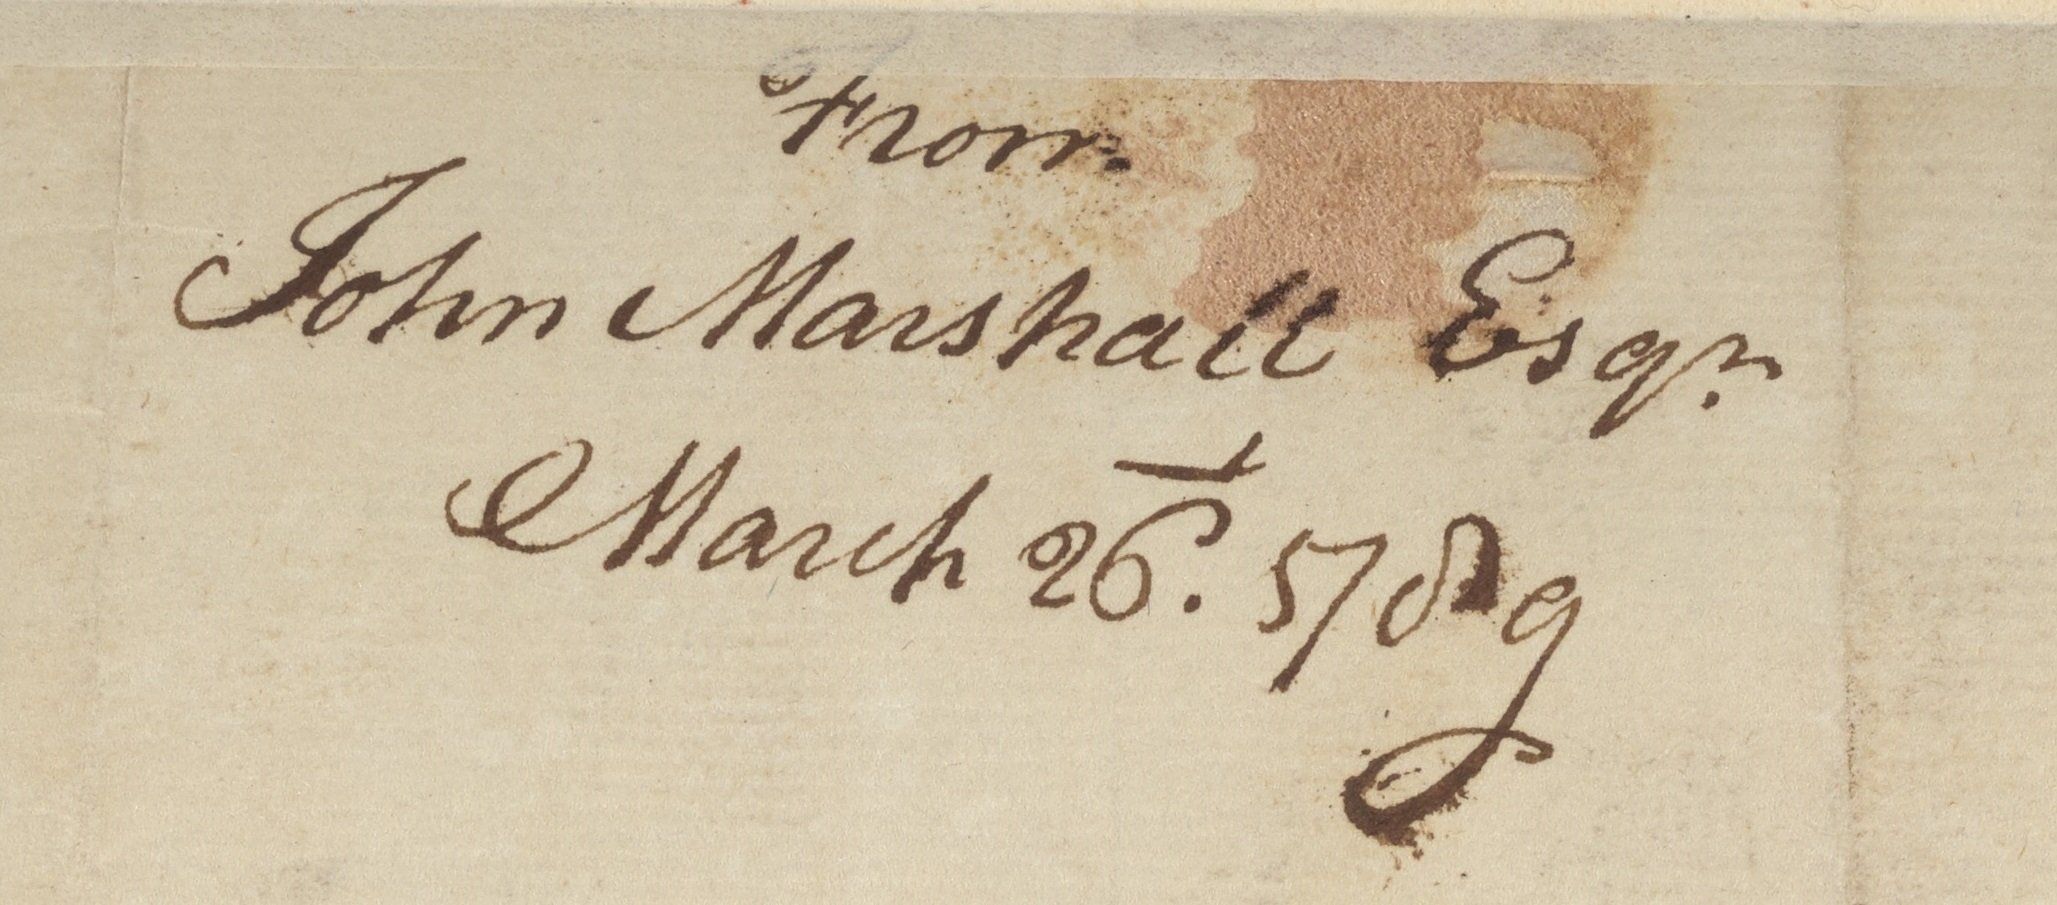 From
John Marshall Esqr.
March 26. 1789